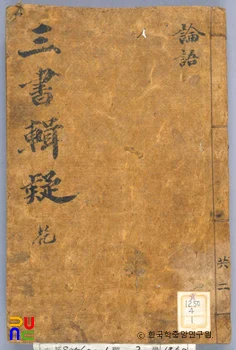 三書輯疑
花
論語
共二
1250
4
1
© 한국학중앙연구원